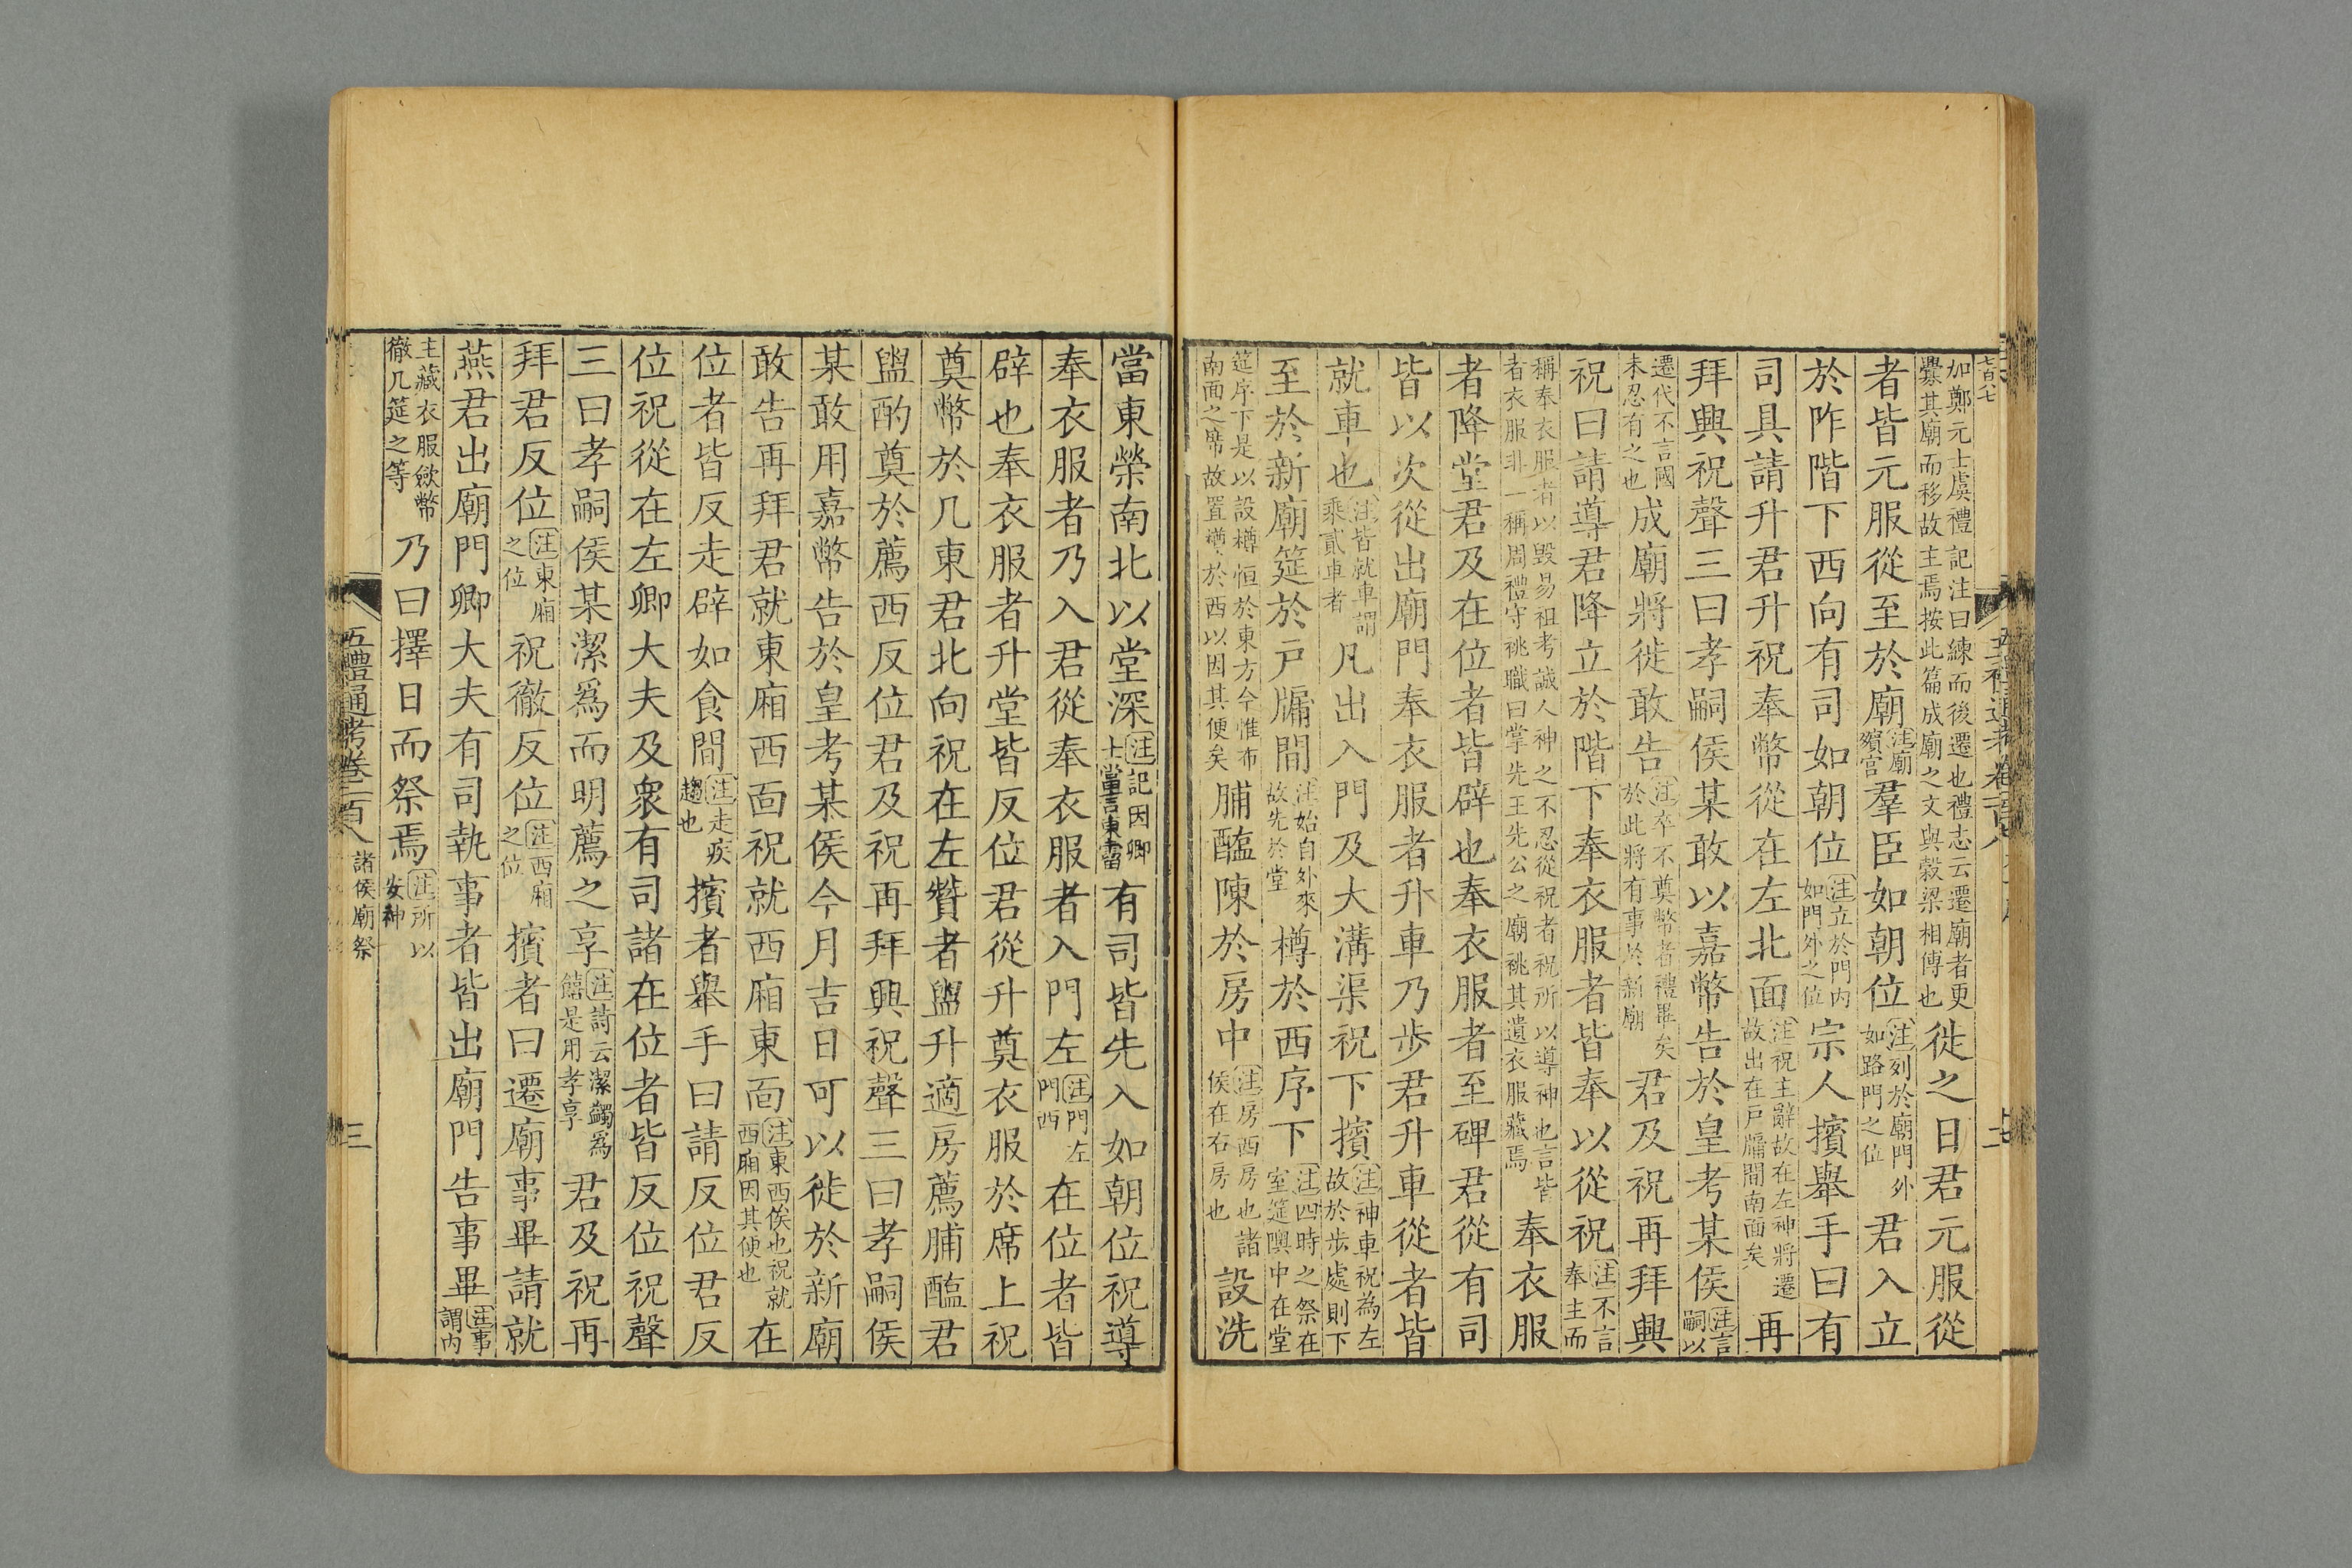 加鄭元士虞禮記注曰練而後遷也禮志云遷廟者更
釁其廟而移故主焉按此篇成廟之文與穀梁相傅也
徙之日君元服從
者皆元服從至於廟注廟殯宮羣臣如朝位注列於廟門外如路門之位君入立
於阼階下西向有司如朝位注立於門內如門外之位宗人擯舉手曰有
司具請升君升祝奉幣從在左北面注祝主辭故在左神將遷故出在戸牖間南面矣再
拜興祝聲三曰孝嗣侯某敢以嘉幣告於皇考某侯注言嗣以
遷代不言國未忍有之也成廟將徙敢告注卒不奠幣者禮畢矣於此將有事於新廟君及祝再拜興
祝曰請導君降立於階下奉衣服者皆奉以從祝注不言奉主而
稱奉衣服者以毀易祖考誠人神之不忍從祝者祝所以導神也言皆
者衣服非一稱周禮守祧職曰掌先王先公之廟祧其遺衣服藏焉
奉衣服
者降堂君及在位者皆辟也奉衣服者至碑君從有司
皆以次從出廟門奉衣服者升車乃步君升車從者皆
就車也注皆就車謂乘貳車者凡出入門及大溝渠祝下擯注神車祝為左故於步處則下
至於新廟筵於戸牖間注始自外來故先於堂樽於西序下注四時之祭在室筵隩中在堂
筵序下是以設樽恒於東方今惟布南面之席故置樽於西以因其便矣脯醢陳於房中注房西房也諸侯在右房也設洗
當東榮南北以堂深注記因卿士當言東霤有司皆先入如朝位祝導
奉衣服者乃入君從奉衣服者入門左注門左門西在位者皆
辟也奉衣服者升堂皆反位君從升奠衣服於席上祝
奠幣於几東君北向祝在左贊者盥升適房薦脯醢君
盥酌奠於薦西反位君及祝再拜興祝聲三曰孝嗣侯
某敢用嘉幣告於皇考某侯今月吉日可以徙於新廟
敢告再拜君就東廂西面祝就西廂東面注東西俟也祝就西廂因其便也在
位者皆反走辟如食間注走疾趨也擯者舉手曰請反位君反
位祝從在左卿大夫及衆有司諸在位者皆反位祝聲
三曰孝嗣侯某潔爲而明薦之享注詩云潔蠲爲饎是用孝享君及祝再
拜君反位注東廂之位祝徹反位注西廂之位擯者曰遷廟事畢請就
燕君出廟門卿大夫有司執事者皆出廟門告事畢注事謂內
主藏衣服斂幣徹几筵之等乃曰擇日而祭焉注所以安神
五禮通考卷一百八 諸侯廟祭
三